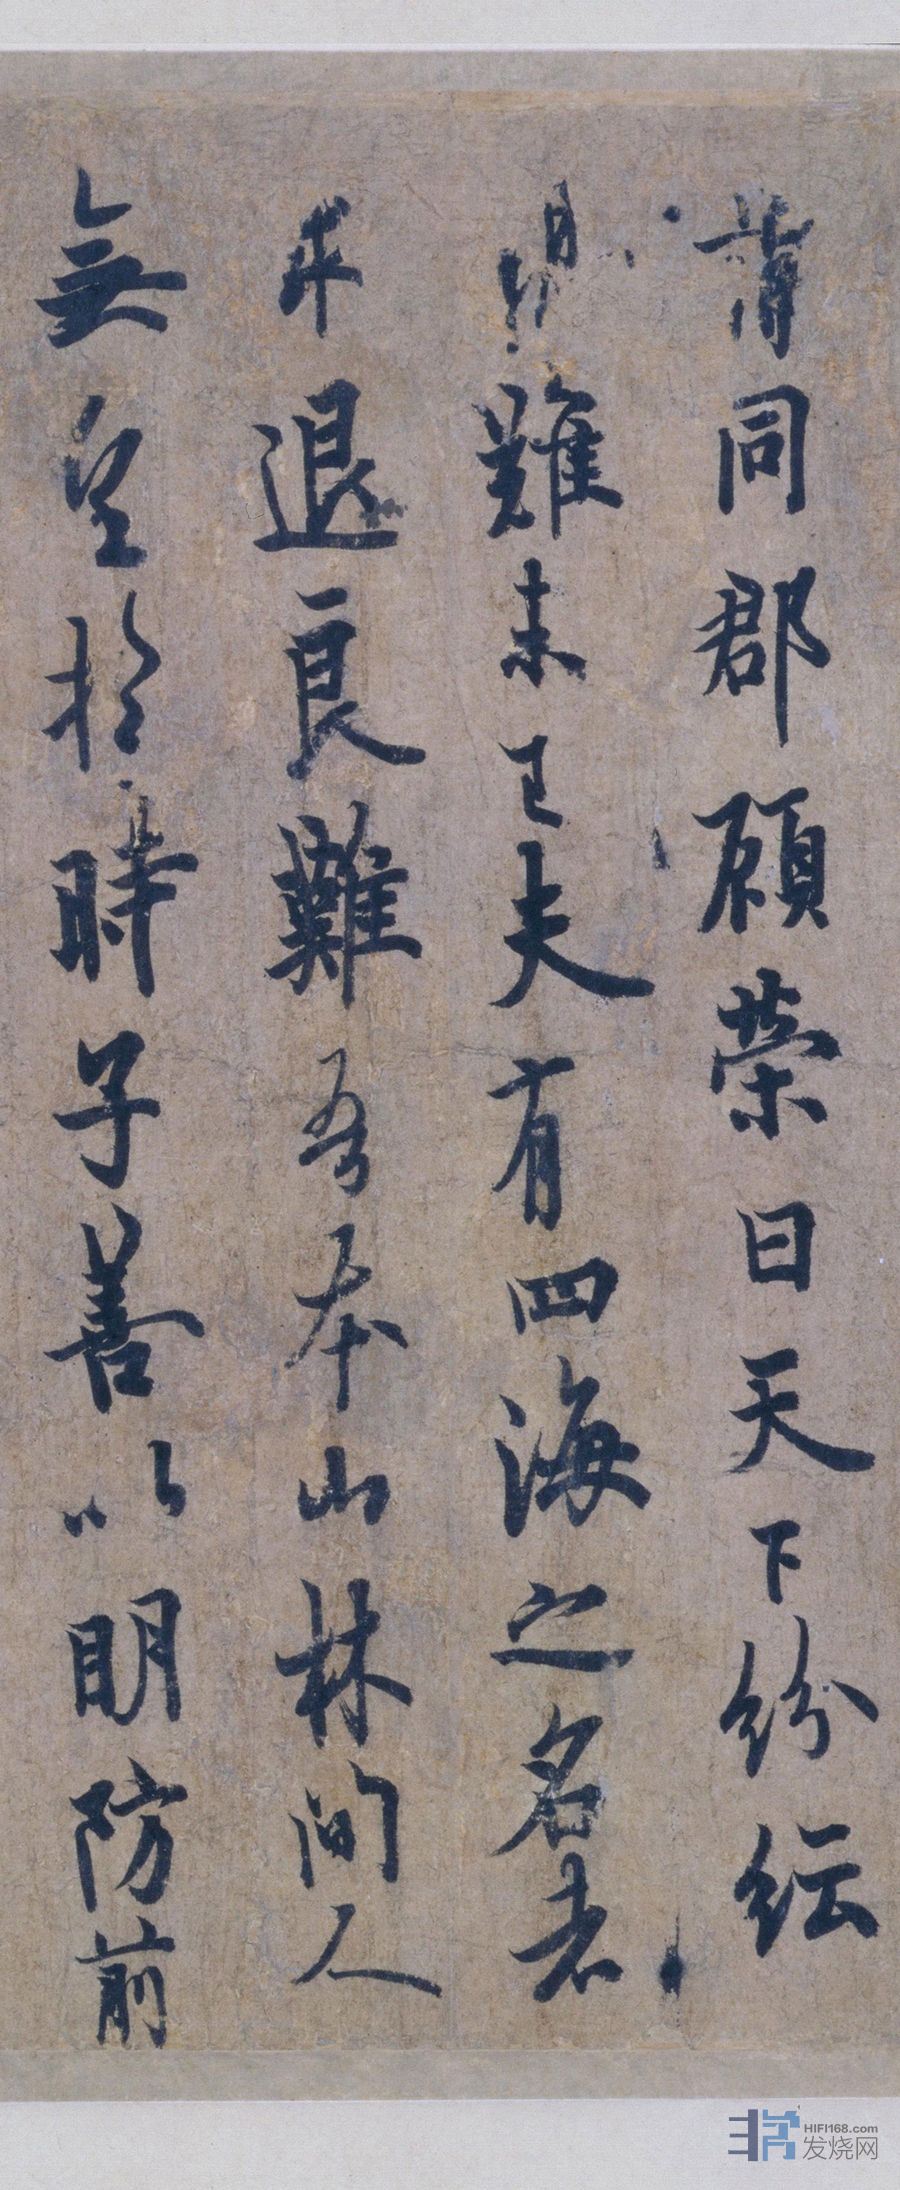 謂同郡顧榮曰天下紛紜
難未已夫有四海之名者
求退良難吾本山林間人
無望於時子善以明防前
HIFI168.com
发烧网